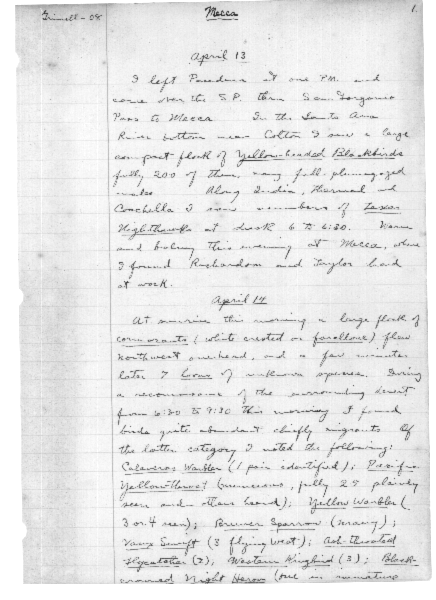 Grinnell - 08
Mecca
1.
April 13
I left Pasadena at one P.M. and
came over the S.P. thru San Gorgonio
Pass to Mecca. In the Santa Ana
River bottom near Colton I saw a large
compact flock of Yellow-headed Blackbirds
fully 200 of them, many full-plumaged
males. Along Indio, Thermal and
Coachella I saw numbers of Texas
Nighthawks at dusk 6 to 6:30. Warm
and balmy this evening at Mecca, where
I found Richardson and Taylor hard
at work.
April 14
At sunrise this morning a large flock of
cormorants (white crested or farallone) flew
northwest overhead, and a few minutes
later 7 loons of unknown species. During
a reconnaissance of the surrounding desert
from 6:30 to 9:30 this morning I found
birds quite abundant chiefly migrants. Of
the latter category I noted the following:
Calaveras Warbler (1 pair identified); Pacific
Yellow-throat (numerous, fully 25 plainly
seen and others heard); Yellow Warbler (
3 or 4 seen); Brewer Sparrow (many);
Vaux Swift (3 flying west); Ash-throated
Flycatcher (2); Western Kingbird (3); Black-
crowned Night Heron (one in immature